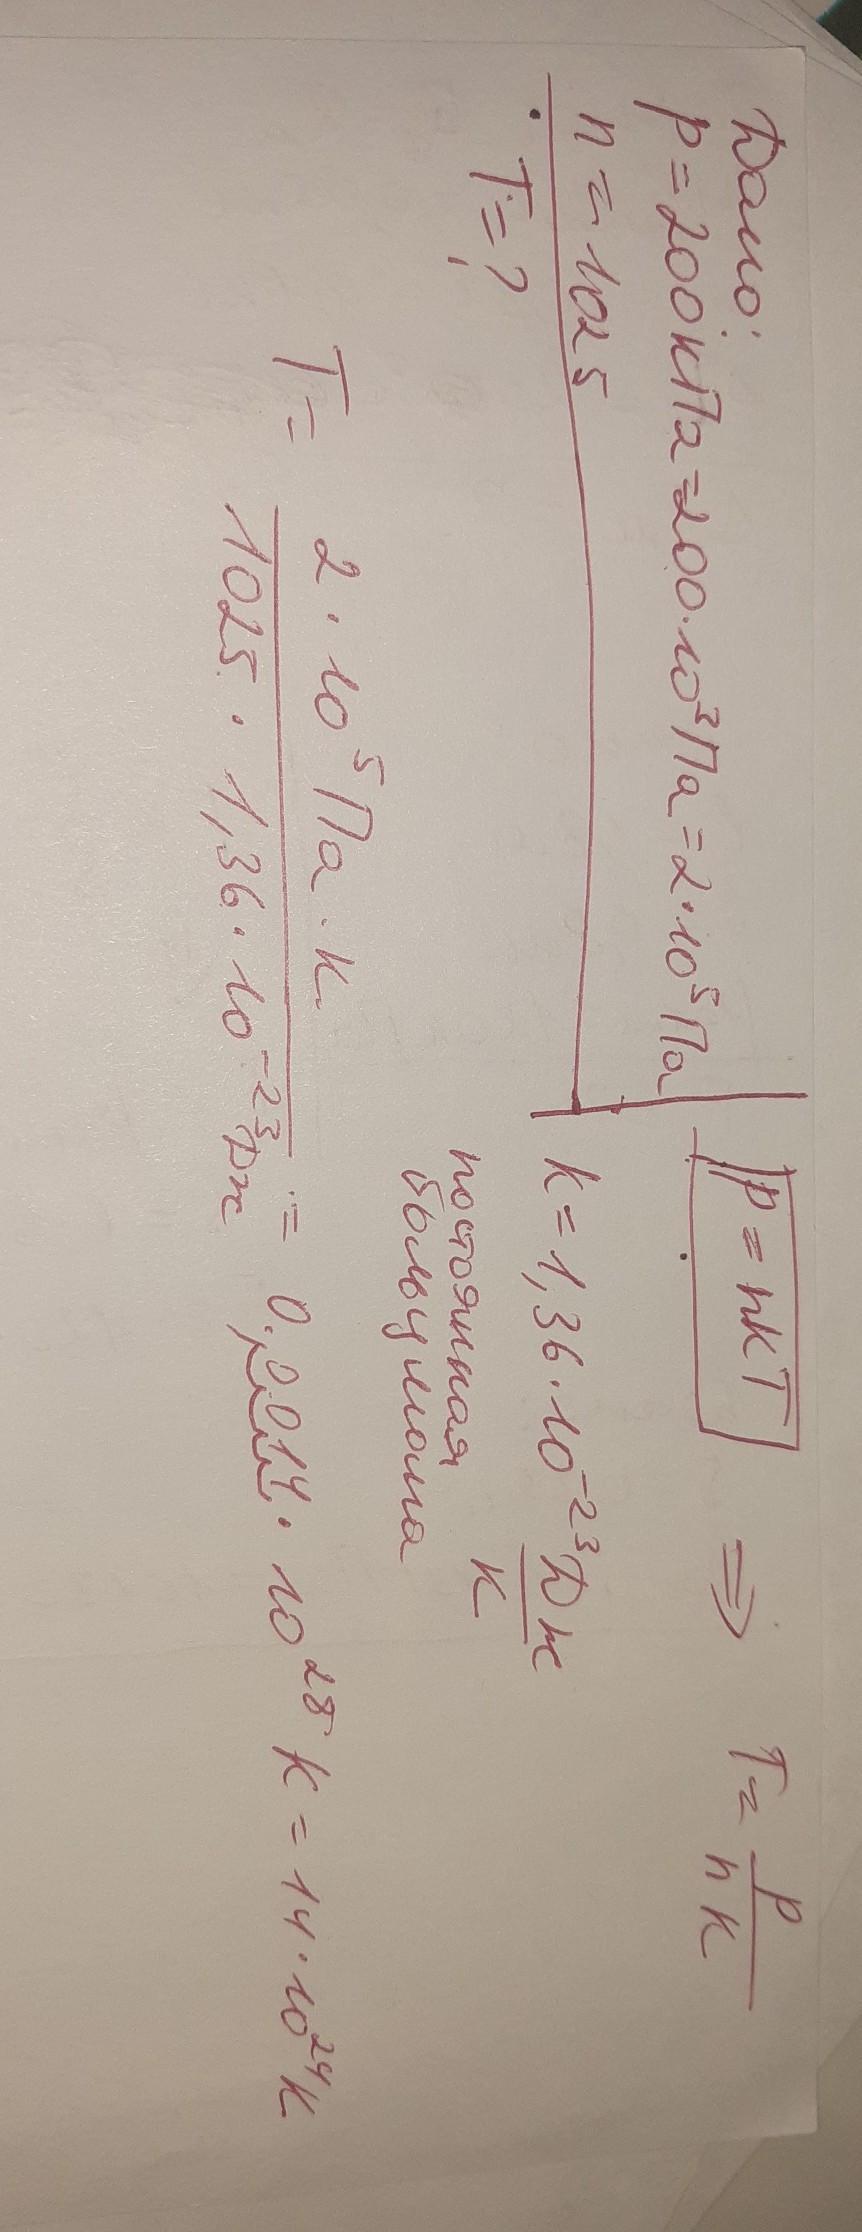 Дано:
p = 200 кПа = 200 · 10³ Па = 2 · 10⁵ Па
n = 1025
T = ?
p = nkT ⇒ T = p / nk
k = 1,36 · 10⁻²³ Дж / К
постоянная
Больцмана
T = 2 · 10⁵ Па · К / 1025 · 1,36 · 10⁻²³ Дж = 0,0014 · 10²⁸ К = 14 · 10²⁴ К